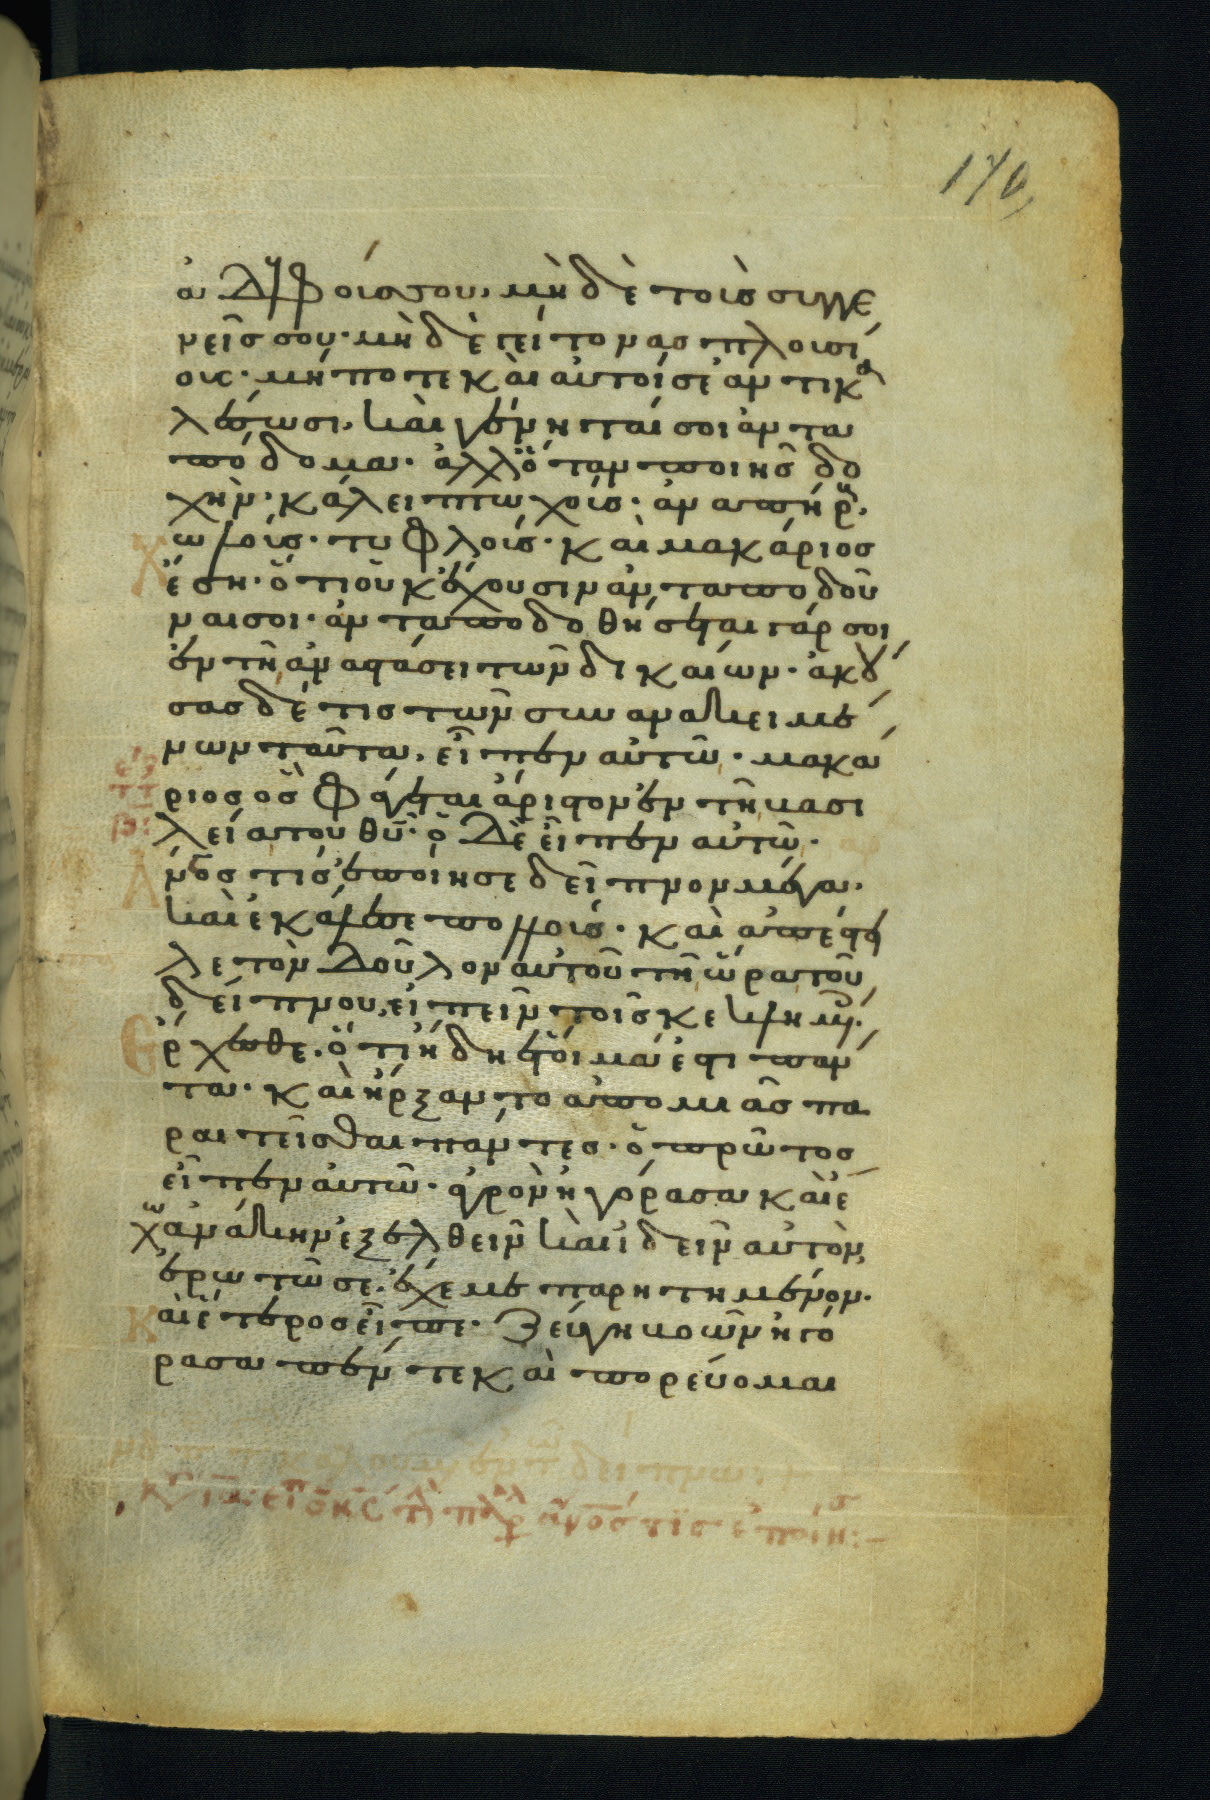 170
ἀδελφοίς σου, μὴ δὲ τοὶς συγγε
νεῖς σου· μὴ δὲ γείτονας πλουσί
ους· μήποτε καὶ αὐτοί σε ἀντικα
λέσωσι, καὶ γένηταί σοι ἀντα
πόδομα· ἀλλ' ὅταν ποιῆς δο
χὴν· κάλει πτωχούς· ἀναπήρους·
χωλούς· τυφλούς· καὶ μακάριος
ἔση· ὅτι οὐκ ἔχουσιν ἀνταποδοῦ
ναι σοι· ἀνταποδοθήσεται γάρ σοι
ἐν τῆ ἀναστάσει τῶν δικαίων· ἀκού
σας δέ τις τῶν συνανακειμέ
νων ταῦτα, εἶπεν αὐτῶ· μακά
ριος ὃς φάγεται ἄριστον ἐν τῆ βασι
λεία του θυ· ὁ δὲ εἶπεν αὐτῶ·
ανος τίς ἐποίησε δεῖπνον μέγα·
καὶ ἐκάλεσε πολλούς· καὶ ἀπέστει
λε τὸν δοῦλον αὐτοῦ τῆ ὥρα τοῦ
δείπνου, εἰπεῖν τοῖς κεκλημένοις·
ἔρχεσθε· ὅτι ἤδη ἕτοιμά ἐστι πάν
τα· καὶ ἤρξαντο ἀπο μιᾶς πα
ραιτεῖσθαι πάντες· ὁ πρῶτος
εἶπεν ἀυτῶ· ἀγρὸν ἠγόρασα καὶ ἔ
χω ἀνάγκην ἐξελθεῖν καὶ ἰδεῖν αὐτὸν,
ἐρωτῶ σε, ἔχε με παρητημένον·
Καὶ ἕτερος εἶπε· Ζεύγη βοῶν ἠγό
ρασα πέντε καὶ πορεύομαι